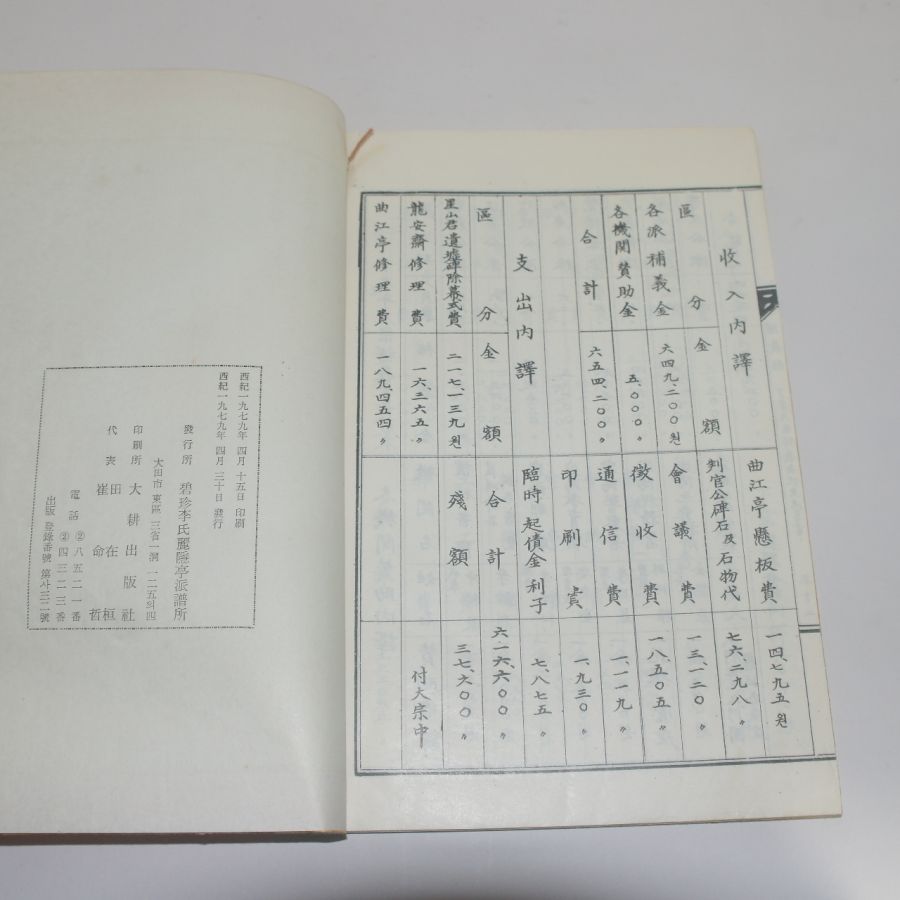 收入內譯
區分 金額
各派補義金 六四九、二〇〇원
各機関賛助金 五、〇〇〇〃
合計 六五四、二〇〇〃
支出內譯
區分 金額
星山君遺墟碑除幕式費 二一七、一三九원
龍安齋修理費 一六、三六五〃
曲江亭修理費 一八九、四五四〃
曲江亭懸板費 一四、七九五원
判官公碑石及石物代 七六、二九八〃
會議費 一三、一二〇〃
徵收費 一八、五〇五〃
通信費 一、一一九〃
印刷費 一、九三〇〃
臨時起債金利子 七、八七五〃
合計 六一六、六〇〇〃
殘額 三七、六〇〇〃
付大宗中
西紀一九七九年 四月 十五日 印刷
西紀一九七九年 四月 三十日 發行
發行所 碧珍李氏麗隱亭派譜所
大田市 東區 三省一洞 一二五의四
印刷所 大耕出版社
代表 田在桓
崔命哲
電話 ②八五二一番
②四三二三番
出版 登錄番號 第卅三二號